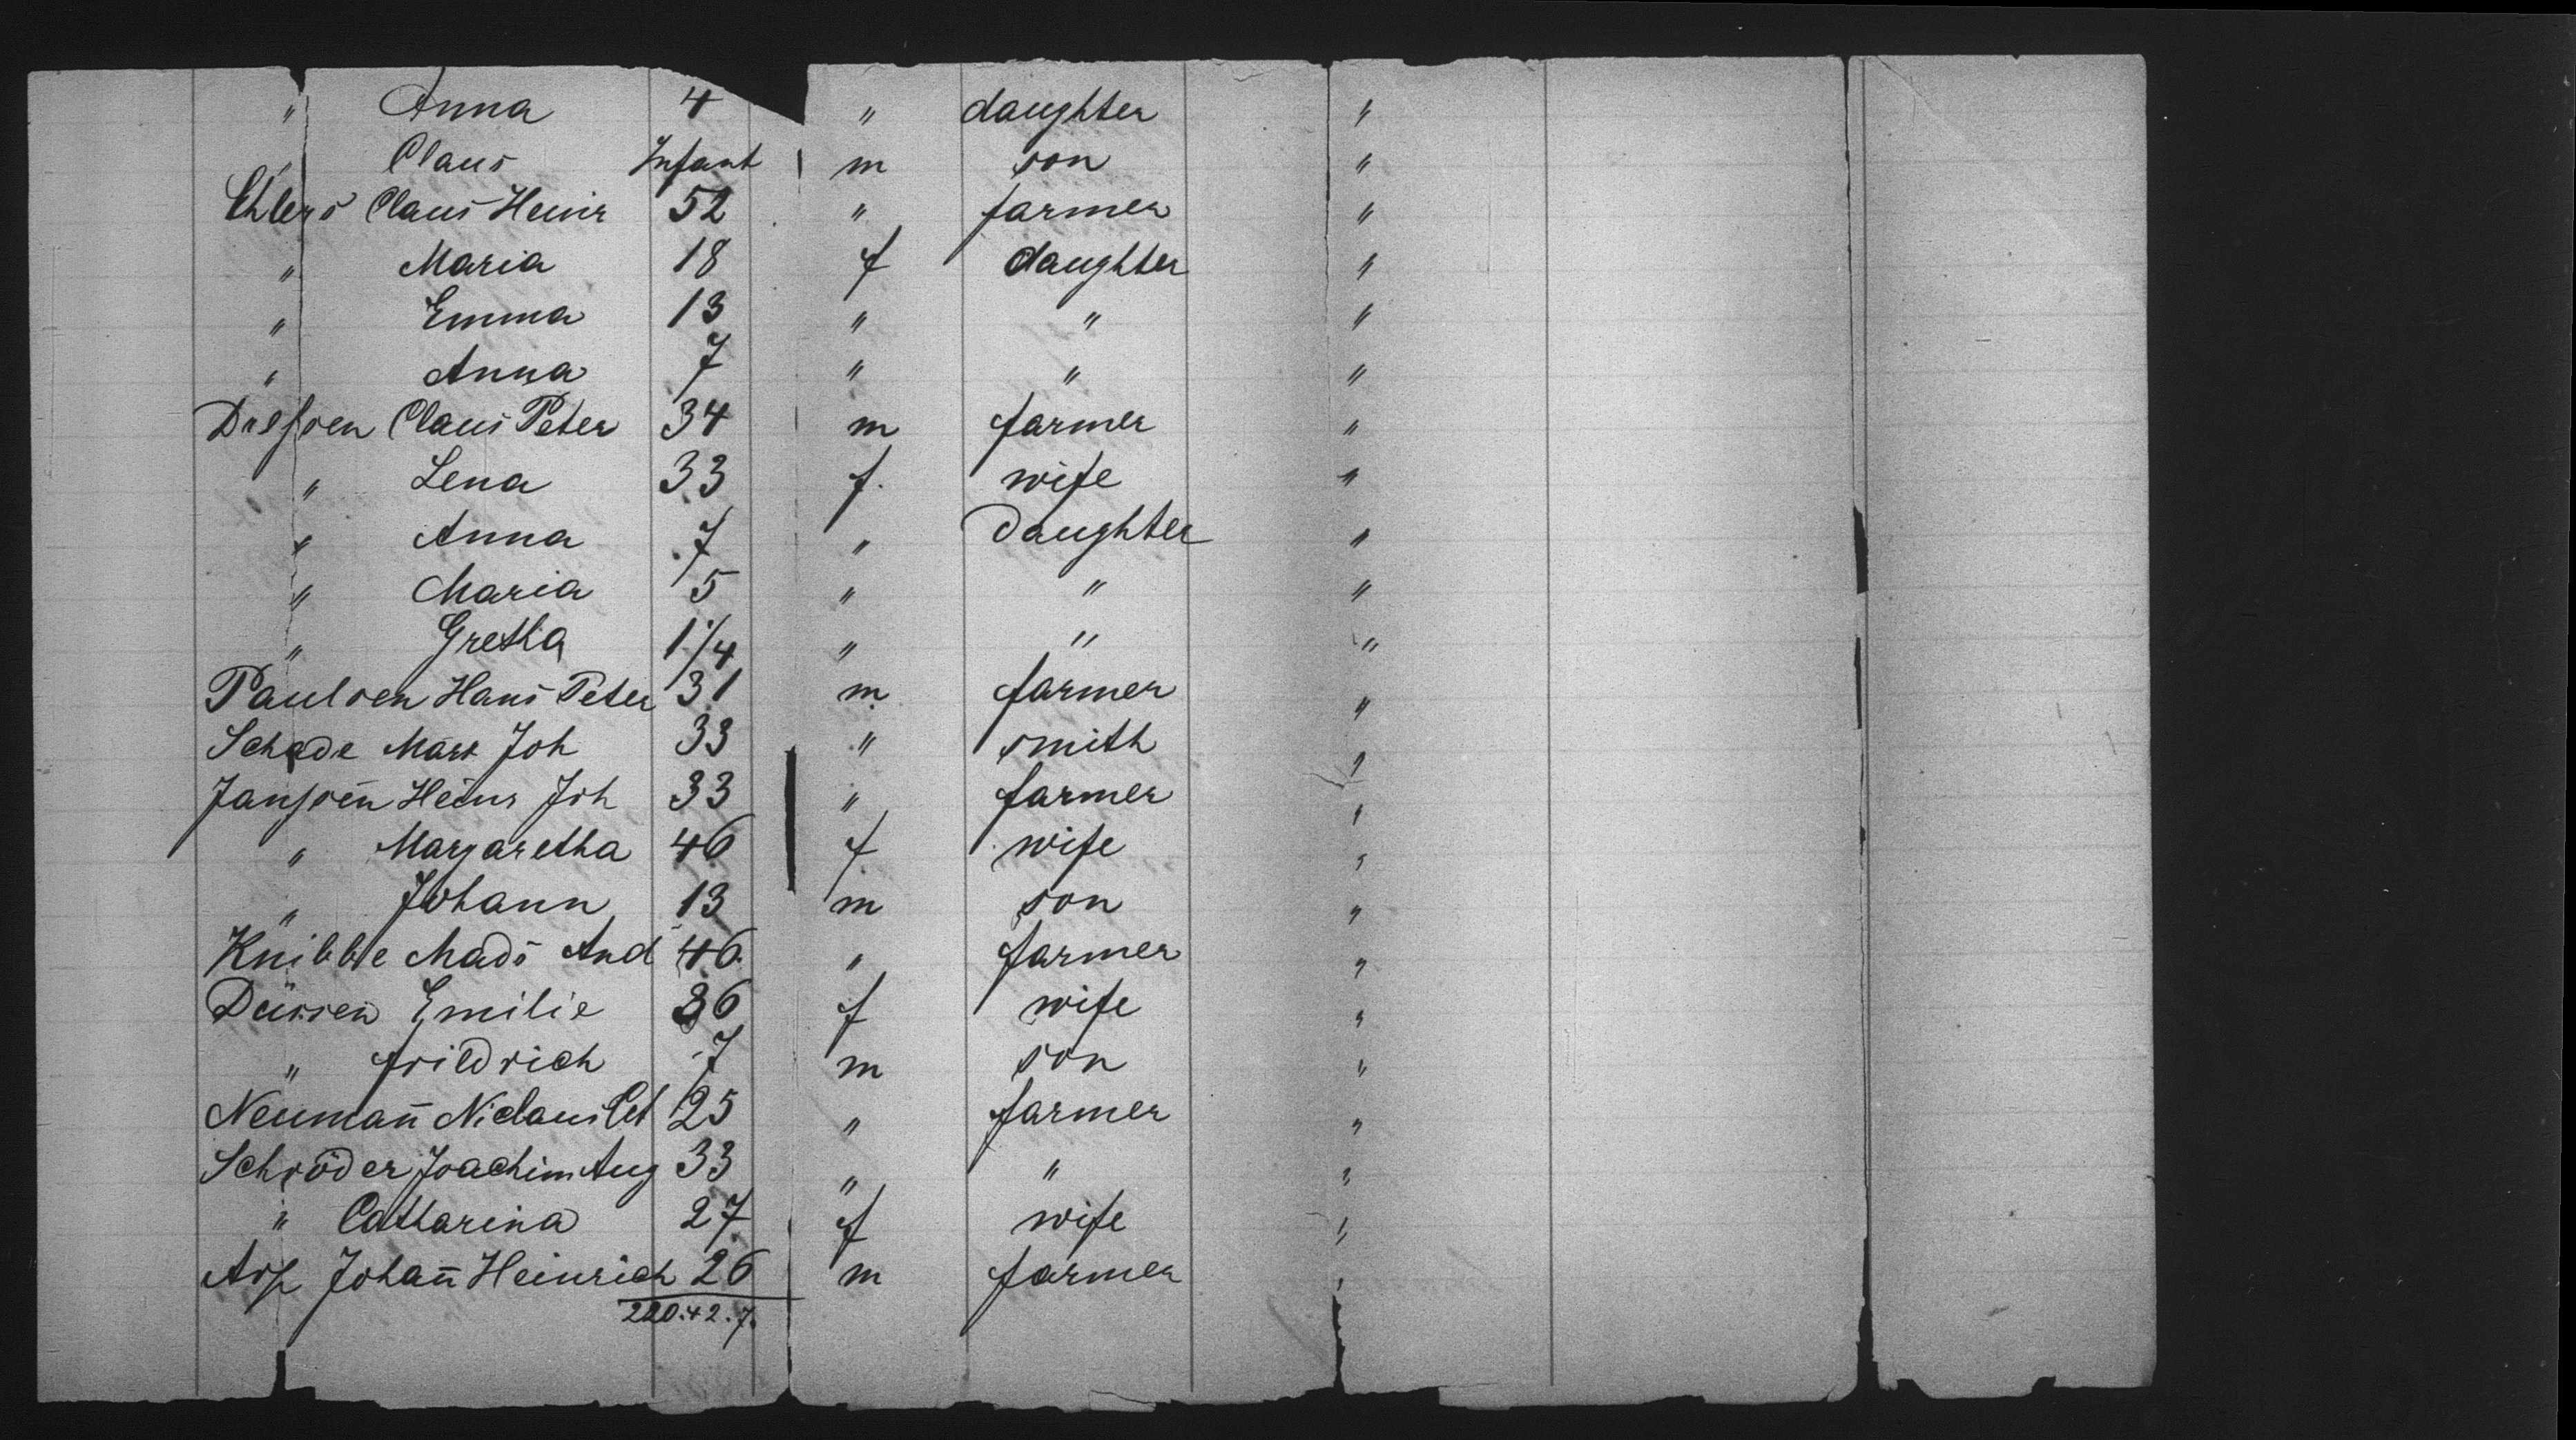 " Anna 4 " daughter "
" Claus Infant m son "
Ehlers Claus Heinr 52 " farmer "
" Maria 18 f daughter "
" Emma 13 " " "
" Anna 7 " " "
Dreßen Claus Peter 34 m farmer "
" Lena 33 f. wife "
" Anna 7 " daughter "
" Maria 5 " " "
" Gretha 1 1/4 " " "
Paulsen Hans Peter 31 m farmer "
Schade Marx Joh 33 " smith "
Janßen Heinr Joh 33 " farmer "
" Margaretha 46 f wife "
" Johann 13 m son "
Knibbe Mads And 46 " farmer "
Düssen Emilie 36 f wife "
" Friedrich 7 m son "
Neumañ Niclaus 25 " farmer "
Schröder Joachim Aug 33 " " "
" Catharina 27 f wife "
Arp Johañ Heinrich 26 m farmer "
220.42.7.